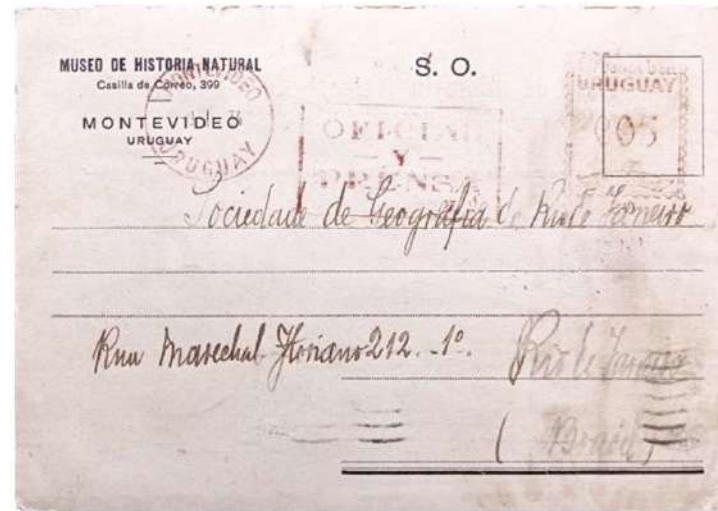 MUSEO DE HISTORIA NATURAL
Casilla de Correo, 399
MONTEVIDEO
URUGUAY
S. O.
MONTEVIDEO
URUGUAY
OFICIAL
Y
PRENSA
URUGUAY
005
Sociedade de Geografia de Rio de Janeiro
Rua Marechal Floriano 212. - 1º.
Rio de Janeiro
(Brasil)